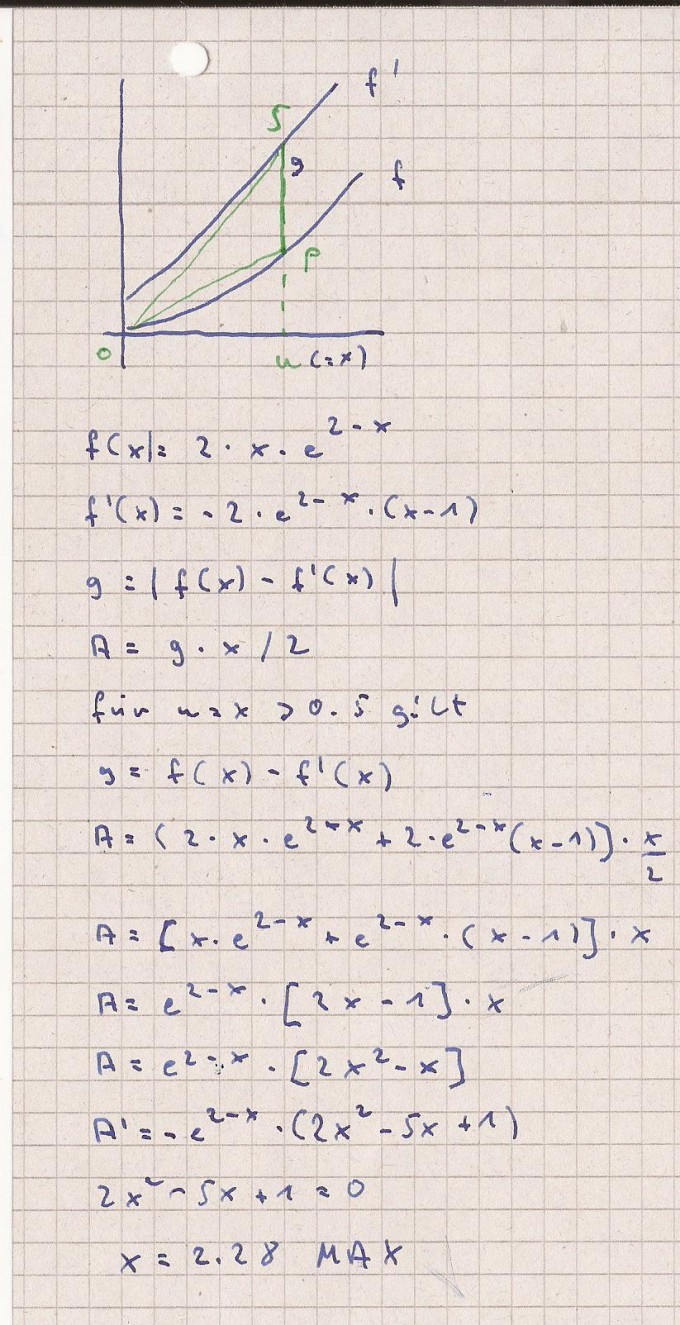 f'
S
g
f
P
0
u (=x)
f(x)= 2 · x · e^{2-x}
f'(x) = -2 · e^{2-x} · (x-1)
g = | f(x) - f'(x) |
A = g · x / 2
für u=x > 0.5 gilt
g = f(x) - f'(x)
A = (2 · x · e^{2-x} + 2 · e^{2-x} (x-1)] · x/2
A = [x · e^{2-x} + e^{2-x} · (x-1)] · x
A = e^{2-x} · [2x - 1] · x
A = e^{2-x} · [2x² - x]
A' = -e^{2-x} · (2x² - 5x + 1)
2x² - 5x + 1 = 0
x = 2.28 MAX